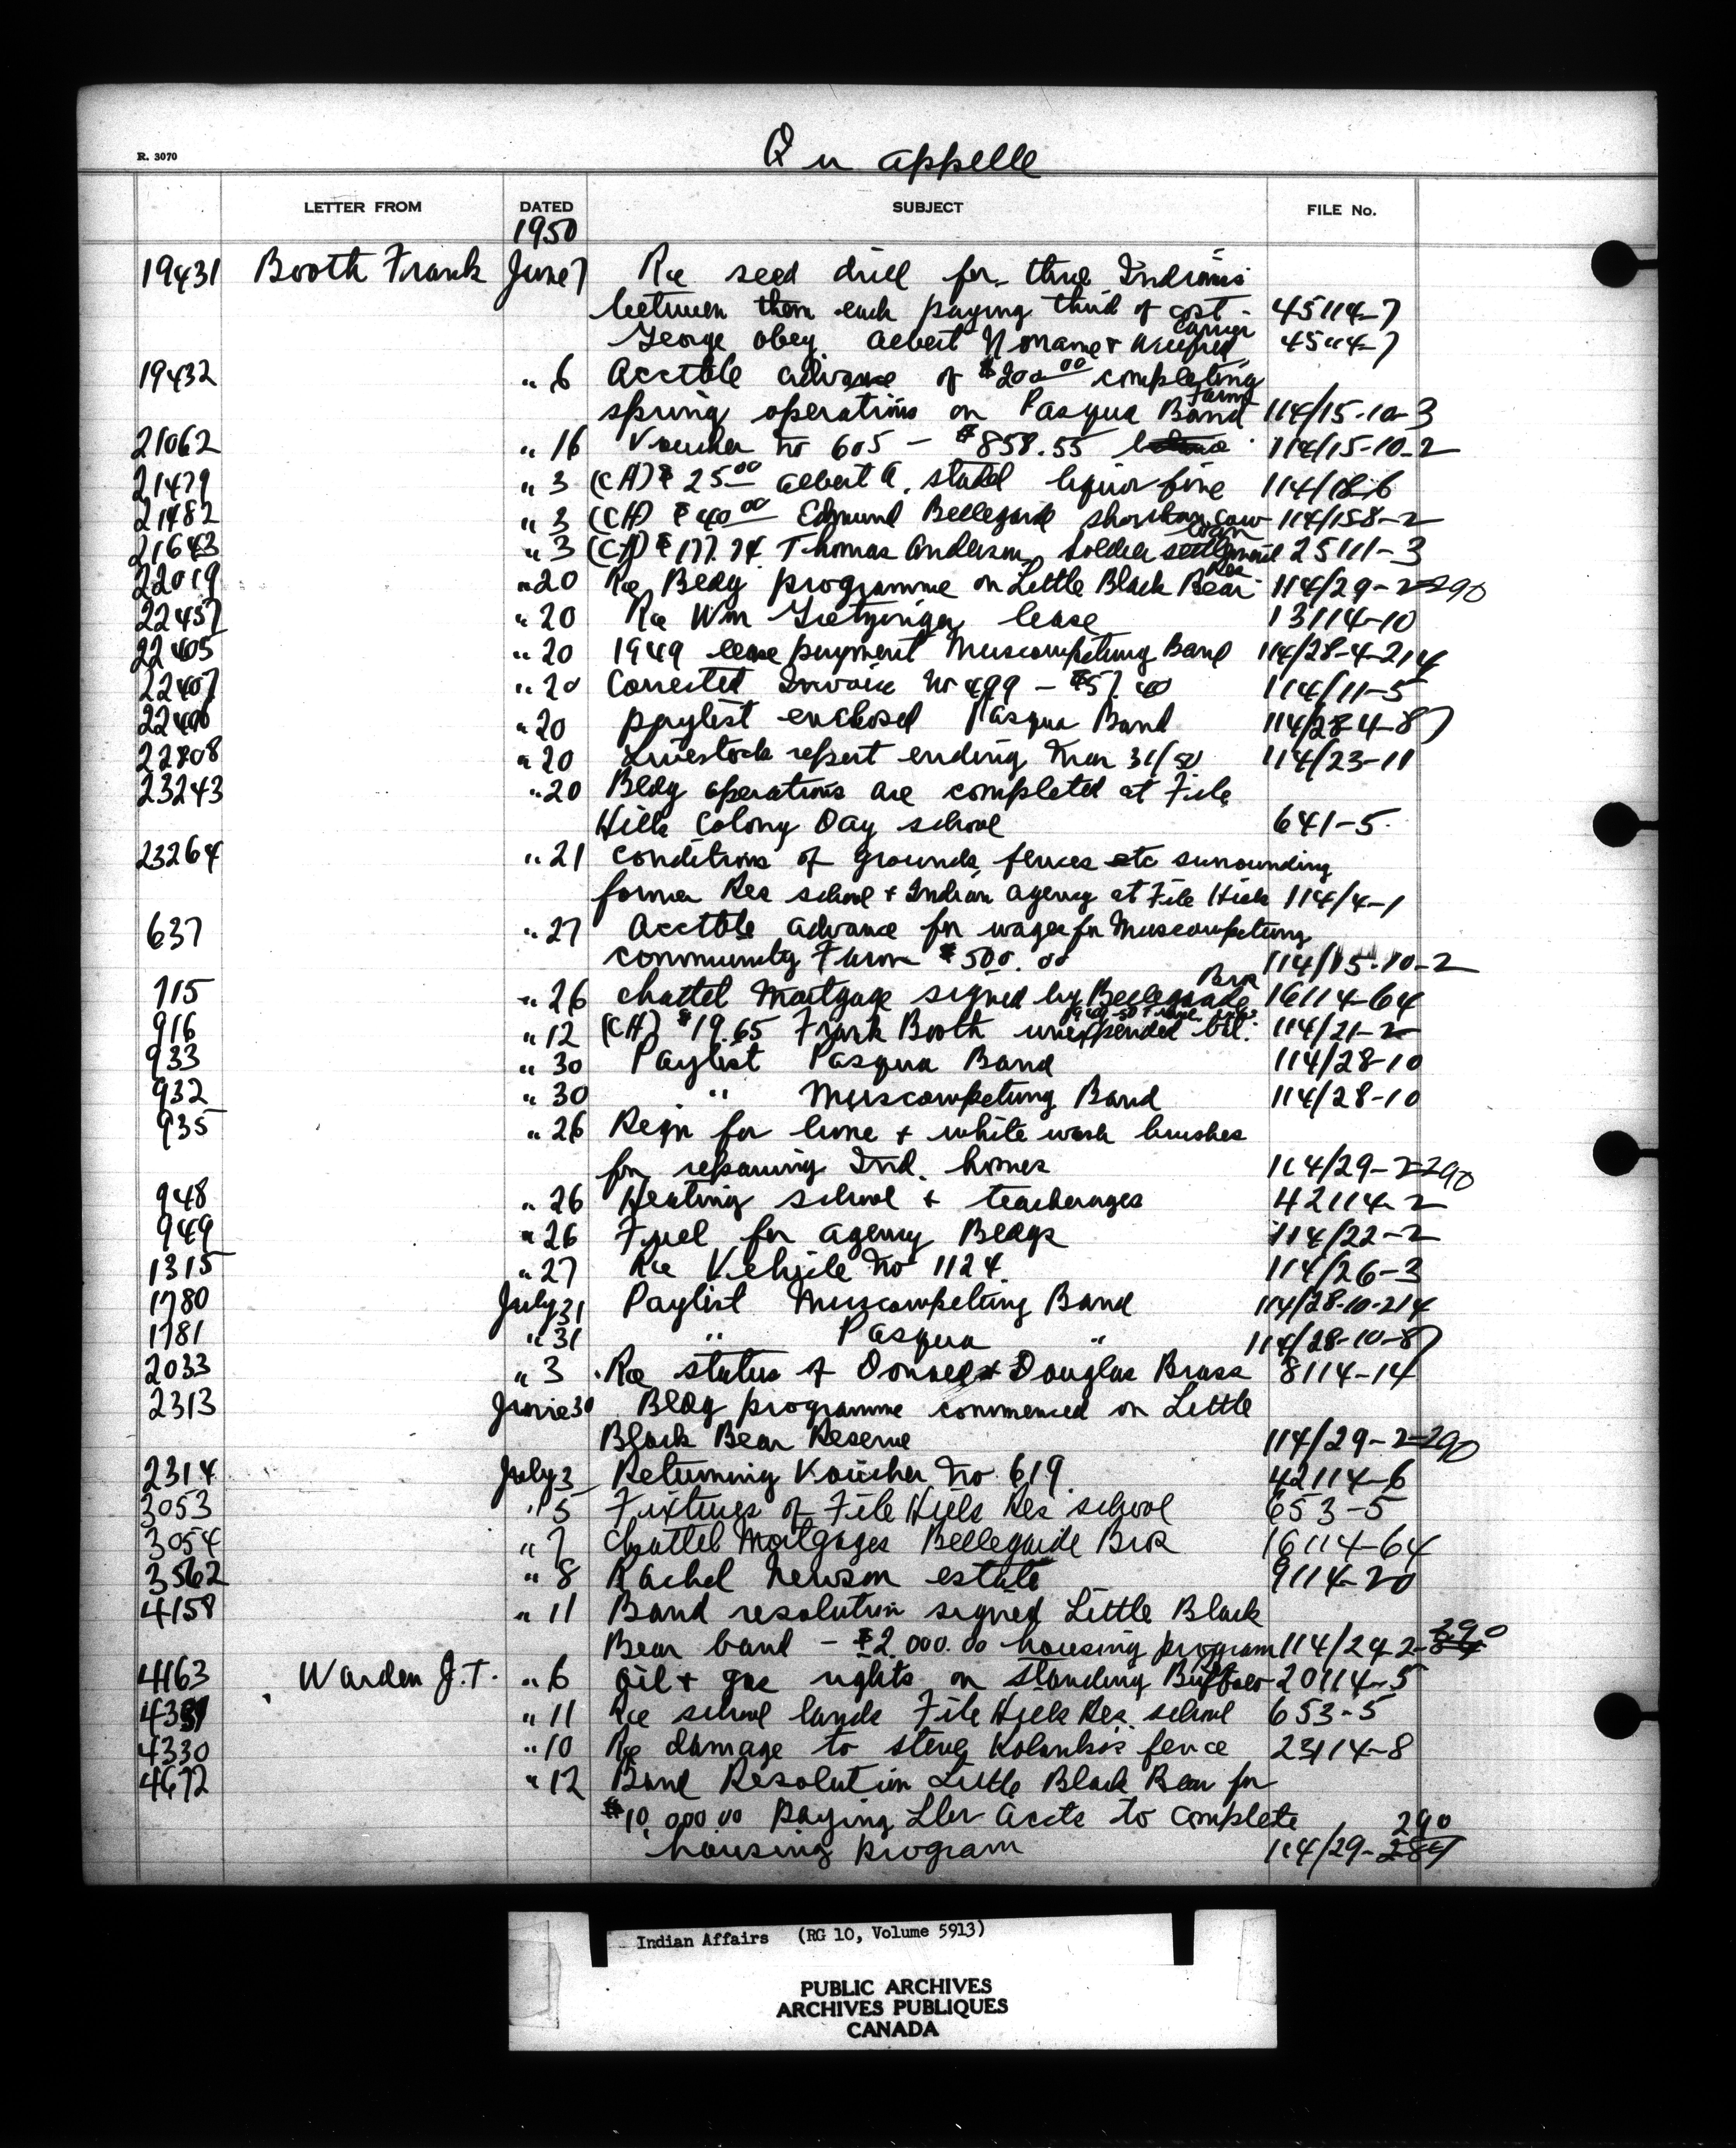 R. 3070
Qu appelle
LETTER FROM DATED SUBJECT FILE No.
1950
19431 Booth Frank June 7 Re seed drill for three Indians
between them each paying third of cost - 45114-7
George Obey Albert Noname + 45114-7
19432 " 6 Acctble advance of $200.00 completing
Farm
spring operations on Pasqua Band 114/15-10-3
21062 " 16 Voucher no 605 - $858.55 114/15-10-2
21479 " 3 (CA) $25.00 Albert A. liquor fine 114/18-6
21482 " 3 (CA) $40.00 Edmund Bellegarde cow 114/158-2
loan
21643 " 3 (CA) $177.74 Thomas Anderson, Soldier settlement 25111-3
Res
22019 " 20 Re Bldg programme on Little Black Bear 114/29-2-290
22437 " 20 Re Wm lease 13114-10
22405 " 20 1949 lease payment Muscowpetung Band 114/28-4-214
22407 " 20 Corrected Invoice No 499 - $57.40 114/11-5
22406 " 20 paylist enclosed Pasqua Band 114/28-4-87
22808 " 20 Livestock report ending Mar 31/50 114/23-11
23243 " 20 Bldg operations are completed at File
Hills Colony Day school 641-5
23264 " 21 conditions of grounds, fences etc surrounding
former Res school + Indian agency at File Hills 114/4-1
637 " 27 Acctble advance for wages for Muscowpetung
community Farm $500.00 114/15-10-2
Bros
715 " 26 chattel Mortgage signed by Bellegarde 16114-64
916 " 12 (CA) $19.65 Frank Booth unexpended bal. 114/21-2
933 " 30 Paylist Pasqua Band 114/28-10
932 " 30 " Muscowpetung Band 114/28-10
935 " 26 Reqn for lime + white wash brushes
for repairing Ind. homes 114/29-2-290
948 " 26 Heating school + teacherages 42114-2
949 " 26 Fuel for agency Bldgs 114/22-2
1315 " 27 Re Vehicle No 1124 114/26-3
1780 July 31 Paylist Muscowpetung Band 114/28-10-214
1781 " 31 " Pasqua " 114/28-10-87
2033 " 3 Re status of + Douglas Brass 8114-14
2313 June 30 Bldg programme commenced on Little
Black Bear Reserve 114/29-2-290
2314 July 3 Returning Voucher No 619 42114-6
3053 " 5 Fixtures of File Hills Res school 653-5
3054 " 7 Chattel Mortgages Bellegarde Bros 16114-64
3562 " 8 Rachel Newson estate 9114-20
4158 " 11 Band resolution signed Little Black
290
Bear band - $2,000.00 housing program 114/29-2-84
4163 Warden J.T. " 6 Oil + gas rights on Standing Buffalo 20114-5
" 11 Re school lands File Hills Res. school 653-5
4330 " 10 Re damage to Steve fence 23114-8
4672 " 12 Band Resolution Little Black Bear for
$10,000.00 paying Lbr Accts to complete
290
housing program 114/29-284
Indian Affairs (RG 10, Volume 5913)
PUBLIC ARCHIVES
ARCHIVES PUBLIQUES
CANADA